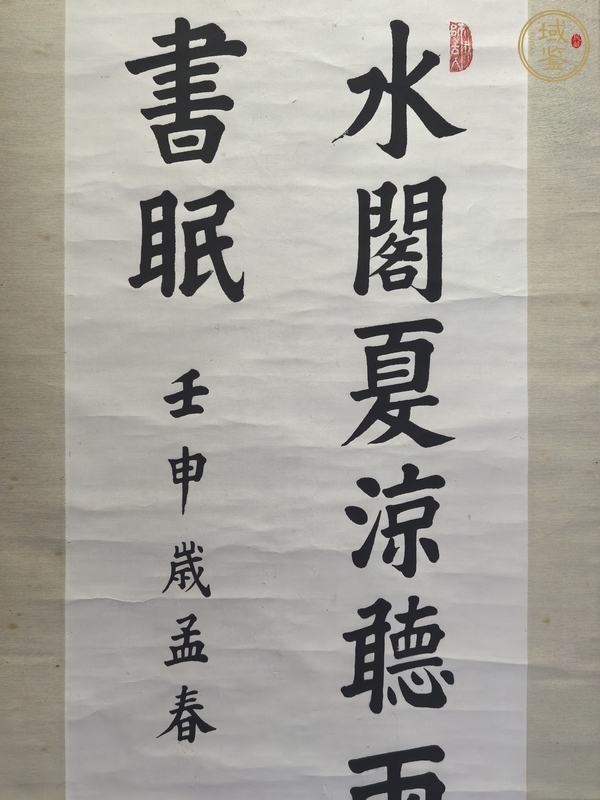 水閣夏涼聽雨
書眠
壬申歲孟春
域鉴